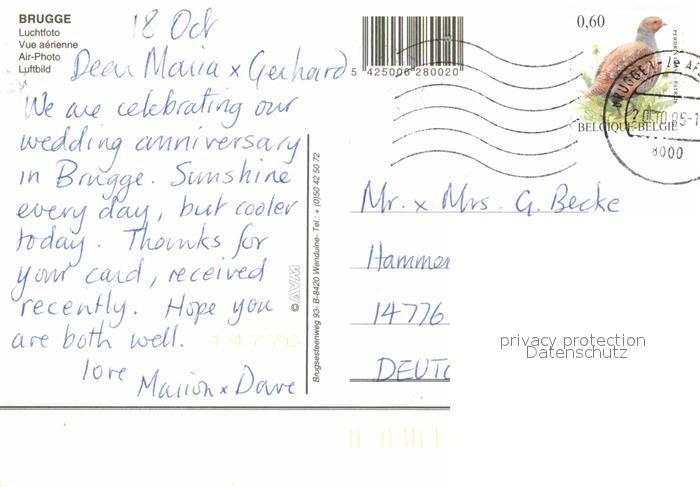 BRUGGE
Luchtfoto
Vue aérienne
Air-Photo
Luftbild
18 Oct
Dear Maria x Gerhard
We are celebrating our
wedding anniversary
in Brugge. Sunshine
every day, but cooler
today. Thanks for
your card, received
recently. Hope you
are both well.
love
Marion x Dave
14776
Brugsesteenweg 93- B-8420 Wenduine- Tel.: + (0)50 42 50 72
© AVM
5 425006 280020
0,60
BELGIQUE-BELGIE
8000
Mr. x Mrs. G. Becke
Hammer
14776
DEUTC
privacy protection
Datenschutz